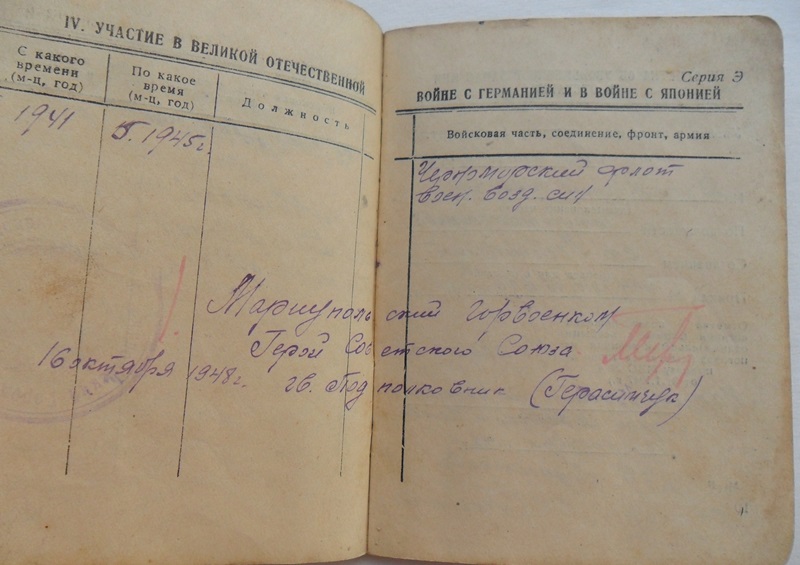 IV. УЧАСТИЕ В ВЕЛИКОЙ ОТЕЧЕСТВЕННОЙ
С какого
времени
(м-ц, год)
По какое
время
(м-ц, год)
Должность
1941
5. 1945г.
Серия Э
ВОЙНЕ С ГЕРМАНИЕЙ И В ВОЙНЕ С ЯПОНИЕЙ
Войсковая часть, соединение, фронт, армия
Черноморский флот
воен. возд. сил
Мариупольский Горвоенком
Герой Советского Союза
16 октября 1948г. гв. Подполковник (Герасимчук)